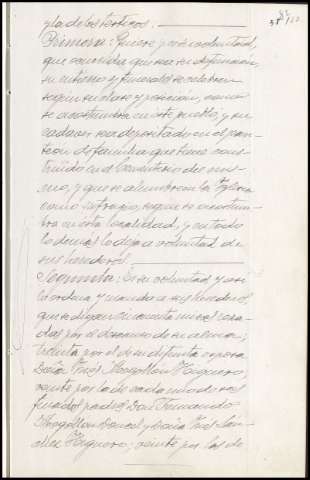 y la de los testigos.
Primera: Quiere y es su voluntad,
que ocurrida que sea su defunción,
su entierro y funerales se celebren
según su clase y posición, como
se acostumbra en este pueblo, y su
cadáver sea depositado en el pan-
teon de familia que tiene cons-
truido en el Cementerio del mis-
mo, y que se alumbre en la Iglesia
como sufragio, según se acostum-
bra en esta localidad, y en todo
lo demás lo deja a voluntad de
sus herederos.
Segunda: Es su voluntad y así
lo ordena y manda a sus herederos,
que se digan cincuenta misas reza-
das por el descanso de su alma;
treinta por el de su difunta esposa
Doña Inés Mogollón Higuero,
veinte por la de cada uno de sus
finados padres Don Fernando
Mogollón y Doña Inés Sán-
chez Higuero; veinte por las de